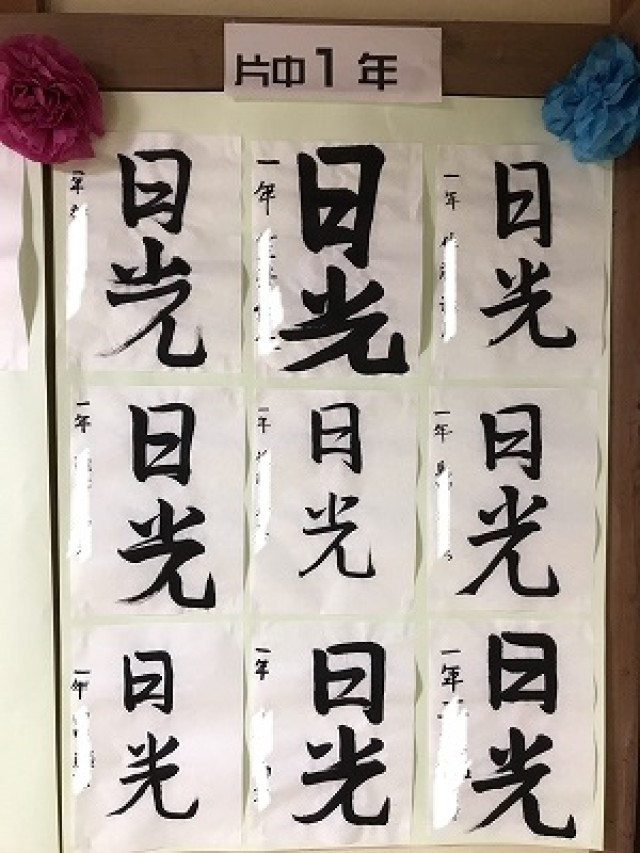 片中1年
日光
一年
日光
一年
日光
一年
日光
一年
日光
一年
日光
一年
日光
一年
日光
一年
日光
一年